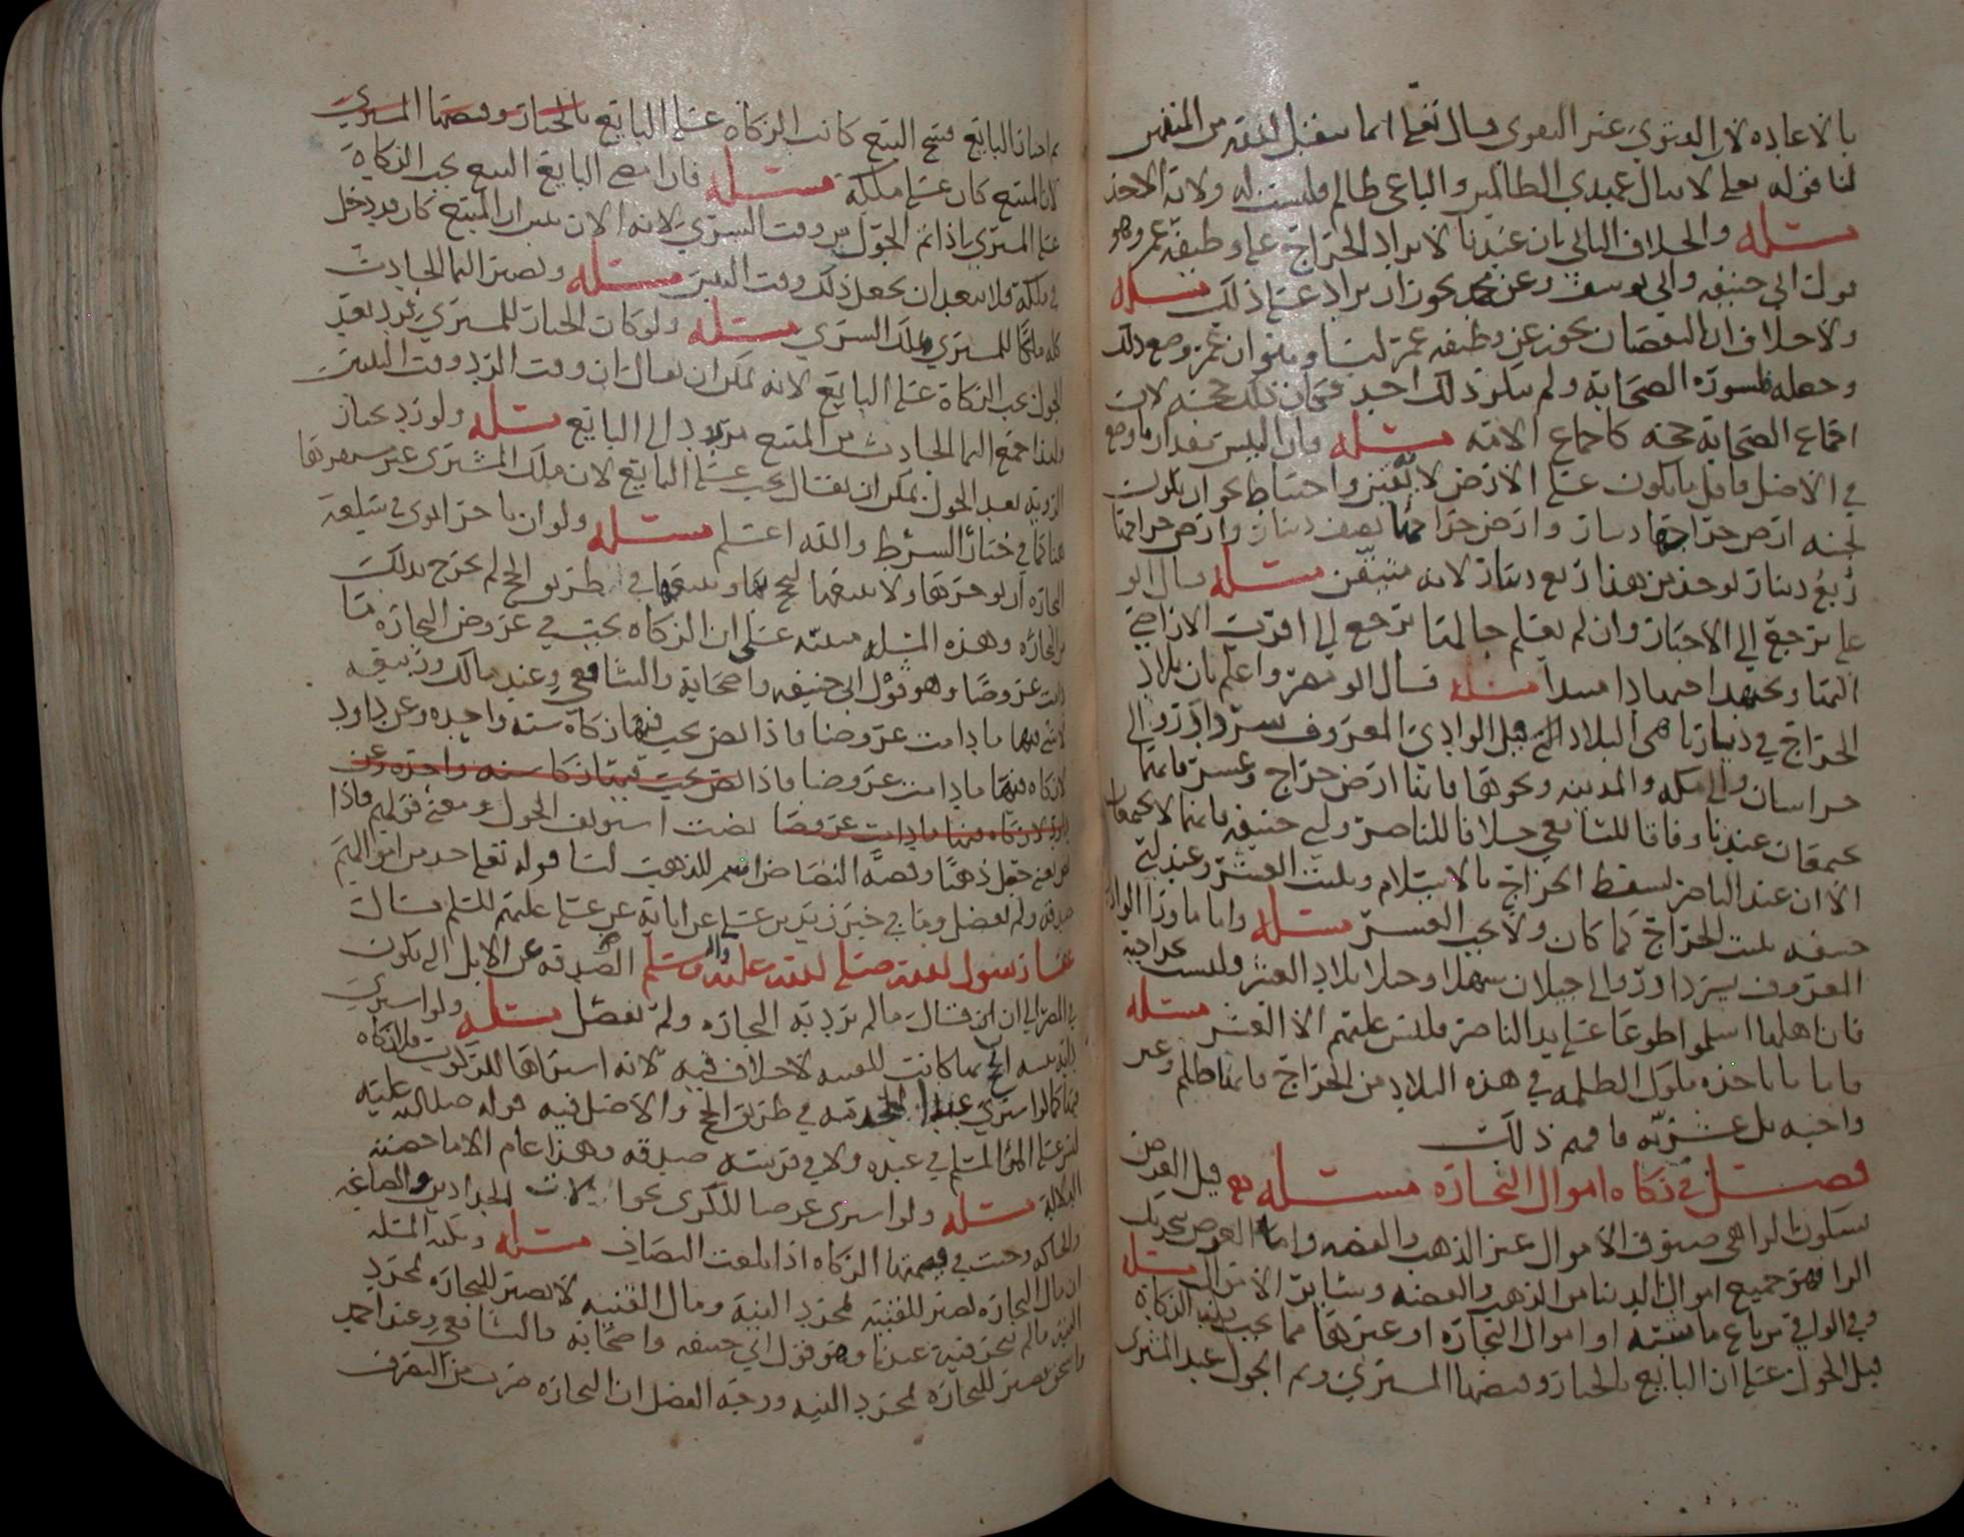 بالاعاده لان الدعوى عند التقوى قال تعلى انما يتقبل الله من المتقين
لنا قوله تعلى لا ينال عهدي الظالمين والباغي ظالم فليست له ولاية الاخذ
مسئلة والخلاف الثاني بان عندنا لا يزاد الخراج على وظيفة عمر وهو
قول ابي حنيفه وابي يوسف وعن محمد يجوز ان يزاد على ذلك مسئلة
ولا خلاف ان النقصان يجوز عن وظيفه عمر لنا وهو ان عمر وضع ذلك
وجعله بمشورة الصحابة ولم ينكر ذلك احد فكان ذلك حجة لان
اجماع الصحابة حجه كاجماع الامه مسئلة فان التبس مقدار ما وضع
في الاصل فاقل ما يكون على الارض لانه متيقن واحتياط نحو ان يكون
لجنبه ارض خراجها دينار وارض خراجها نصف دينار وارض خراجها
ربع دينار يوخذ من هذا ربع دينار لانه متيقن مسئلة قال ابو
علي يرجع الى الاخبار وان لم يعلم حالها يرجع الى اقرب الاراضي
اليها ويجتهد مسئلة قال ابو مضر واعلم بان بلاد
الخراج في ديارنا هي البلاد التي قبل الوادي المعروف الى
خراسان والى مكه والمدينه ونحوها فانها ارض خراج وعشر فانهما
يجتمعان عندنا وفاقا للشافعي خلافا للناصر وابي حنيفه فانهما لا يجتمعان
الا ان عند الناصر يسقط الخراج بالاسلام ويثبت العشر وعند ابي
حنيفه يثبت الخراج كما كان ولا يجب العشر مسئلة واما ما وراء الوادي
المعروف الى جيلان سهلا وجبلا بلاد العشر وليست بخراجية
فان اهلها اسلموا طوعا على يد الناصر فليس عليهم الا العشر مسئلة
فاما ما ياخذه ملوك الظلمه في هذه البلاد من الخراج فانها ظلم وغير
واجبه بل عشريه فافهم ذلك
فصل في زكاة اموال التجارة مسئلة قيل العرض
بسكون الرا هي صنوف الاموال غير الذهب والفضه واما العرض بتحريك
الرا فهو جميع اموال الدنيا من الذهب والفضه وسائر الاموال مسئلة
وفي الوافي من باع ماشية او اموال التجاره او غيرها مما يجب فيه الزكاة
قبل الحول على ان البايع بالخيار وقبضها المشتري وتم الحول عند المشتري
ثم اختار البايع فسخ البيع كانت الزكاة على البايع بالخيار وقبضها المشتري
لان المبيع كان على ملكه مسئلة فان امضى البايع البيع يجب الزكاة
على المشتري اذا تم الحول من وقت الشرى لانه الان تبين ان المبيع كان قد دخل
في ملكه فلا يبعد ان يجعل ذلك وقت مسئلة ويصير النما الحادث
كله ملكا للمشتري وملك الشرى مسئلة ولو كان الخيار للمشتري فرد بعد
الحول يجب الزكاة على البايع لانه يمكن ان يقال ان وقت الرد وقت التبين
ولهذا جميع النما الحادث من المبيع يرد الى البايع مسئلة ولو رد بخيار
الرويه بعد الحول يمكن ان يقال يجب على البايع لان ملك المشتري غير مستقر
هنا كما في خيار الشرط والله اعلم مسئلة ولو ان تاجرا نوى في سلعة
التجاره ان يوجرها ولا يبيعها في طريق الحج لم يخرج بذلك
من التجاره وهذه المسئله مبنيه على ان الزكاه يجب في عروض التجارة ما
دامت عروضا وهو قول ابي حنيفه واصحابه والشافعي وعند مالك وربيعه
لا شي فيها ما دامت عروضا فاذا نض يجب فيها زكاة سنه واحده وعن داود
لا زكاه فيها ما دامت عروضا فاذا نض يجب فيها زكاة سنه واحده وعن
داود لا زكاه فيها ما دامت عروضا نضت استونف الحول ومعنى قولهم فاذا
نض يعني جعل ذهبا وفضة الناض اسم للذهب لنا قوله تعلى خذ من اموالهم
صدقه ولم يفصل وما في خبر زيد بن علي عن ابايه عن علي عليهم السلم قال
عفا رسول الله صلى الله عليه واله وسلم الصدقه عن الابل التي تكون
في المصر الى ان قال ما لم ترد به التجاره ولم يفصل مسئلة ولو اشترى
الحج بما كانت للقنيه لا خلاف فيه لانه اشتراها للركوب فلا زكاه
فيها كما لو اشترى عبدا لخدمته في طريق الحج والاصل فيه قوله صلى الله عليه
ليس على المسلم في عبده ولا في فرسه صدقه وهذا عام الا ما خصته
الدلاله مسئلة ولو اشترى عرضا للكرى نحو الات الحدادين والصاغه
والحاكه وجبت في قيمتها الزكاه اذا بلغت النصاب مسئلة ونكته المسئله
ان مال التجاره يصير للقنيه بمجرد النية ومال القنيه لا يصير للتجاره بمجرد
النيه ما لم يتجر فيه عندنا وهو قول ابي حنيفه واصحابه والشافعي وعند احمد
واسحق يصير للتجاره بمجرد النيه ووجه الفصل ان التجاره ضرب من التصرف